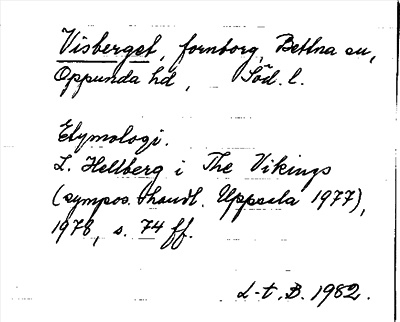 Visberget, fornborg, Bettna sn,
Oppunda hd, Söd. l.
Etymologi.
L. Hellberg i The Vikings
(sympos. handl. Uppsala 1977),
1978, s. 74 ff.
L-t. B. 1982.